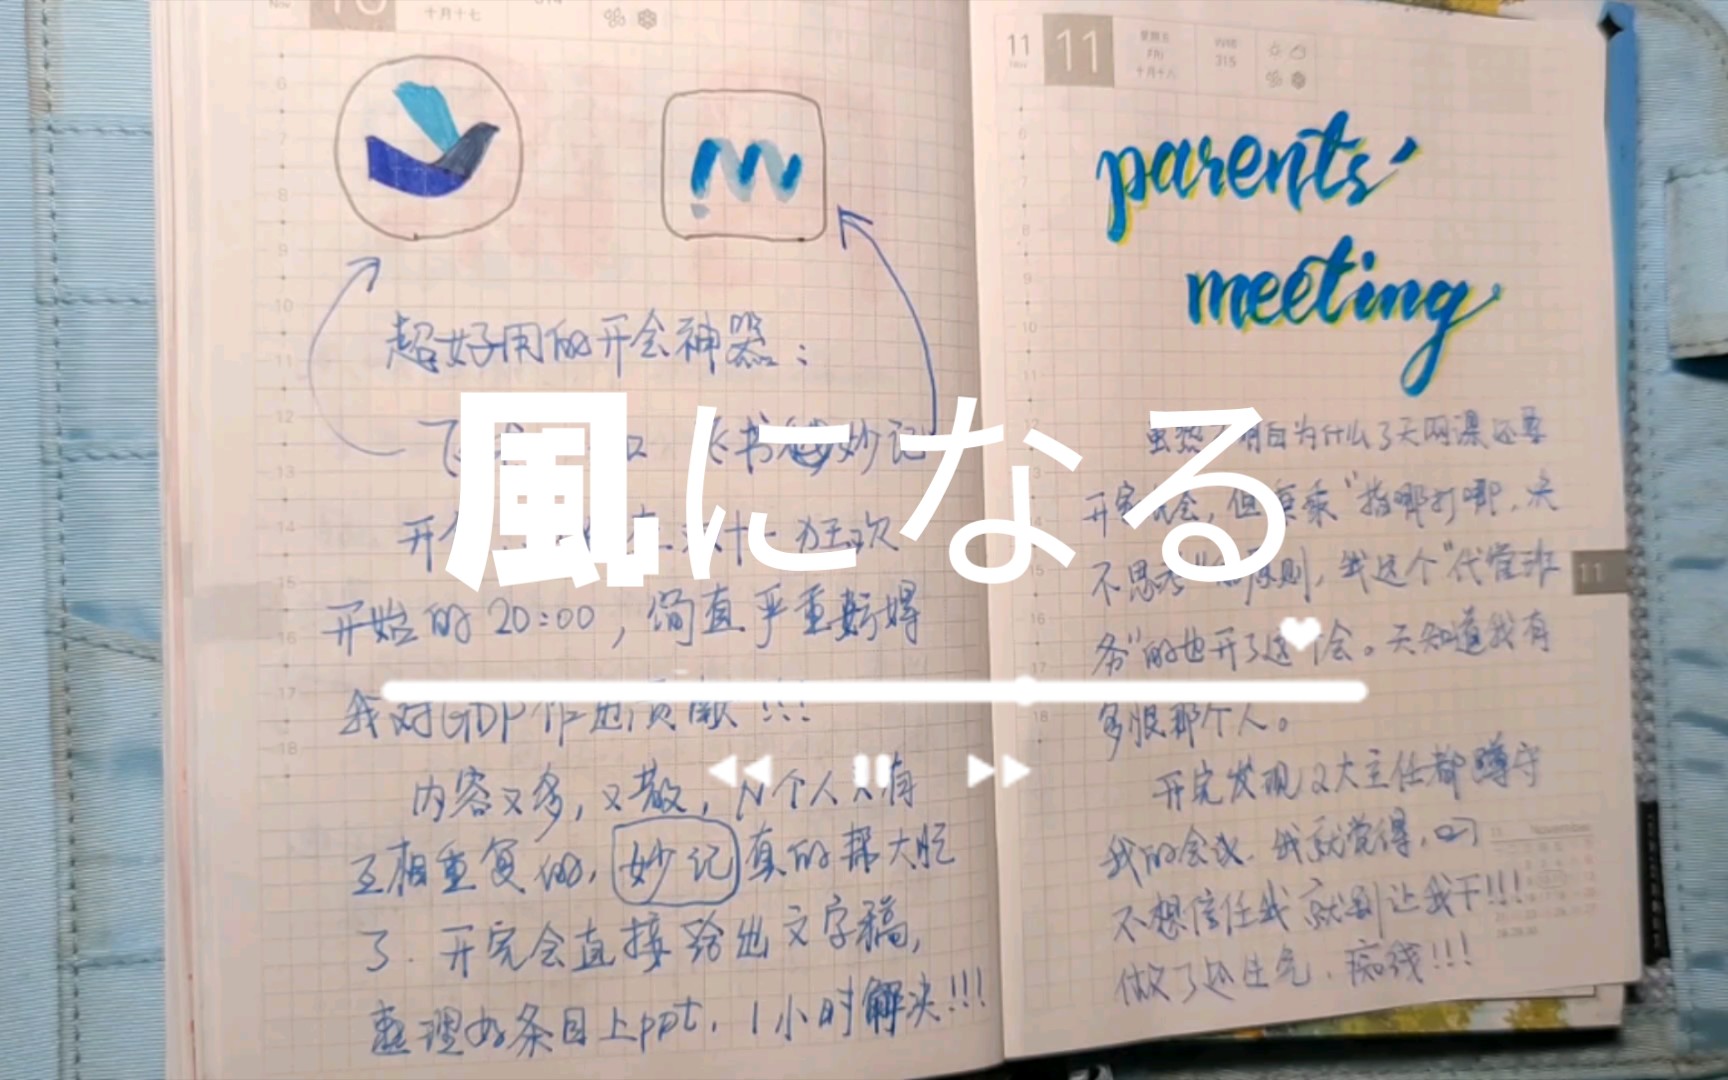 十月十七
超好用的开会神器:
飞书 飞书妙记
开 狂欢
开始的20:00,简直严重耽误
我对GDP作出贡献!!!
内容又多,又散,N个人又有
互相重复的,妙记真的帮大忙
了.开完会直接给出文字稿,
整理好条目上ppt,1小时解决!!!
11
Nov
11
星期五
FRI
十月十八
315
parents'
meeting
虽然 明白为什么了天网课还要
开家长会,但秉乘"指哪打哪,决
不思考"的原则,我这个"代管班
务"的也开了这个会。天知道我有
多恨那个人。
开完发现2大主任都蹲守
我的会议.我就觉得,
不想信任我就别让我干!!!
做了还生气.痴线!!!
11
November
風になる